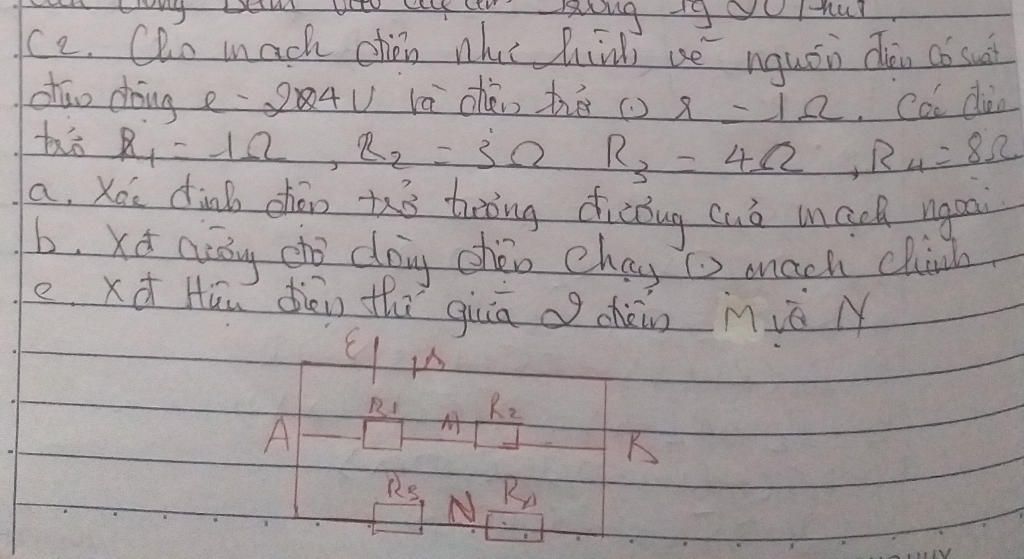 C2. Cho mạch điện như hình vẽ nguồn điện có suất
điện động e = 24V và điện trở (.) r = 1Ω. Các điện
trở R1 = 1Ω, R2 = 3Ω R3 = 4Ω, R4 = 8Ω
a. Xác định điện trở tương đương của mạch ngoài.
b. Xđ cường độ dòng điện chạy (.) mạch chính
c. Xđ Hiệu điện thế giữa 2 điểm M và N
E
R1 M R2
A B
R3 N R4